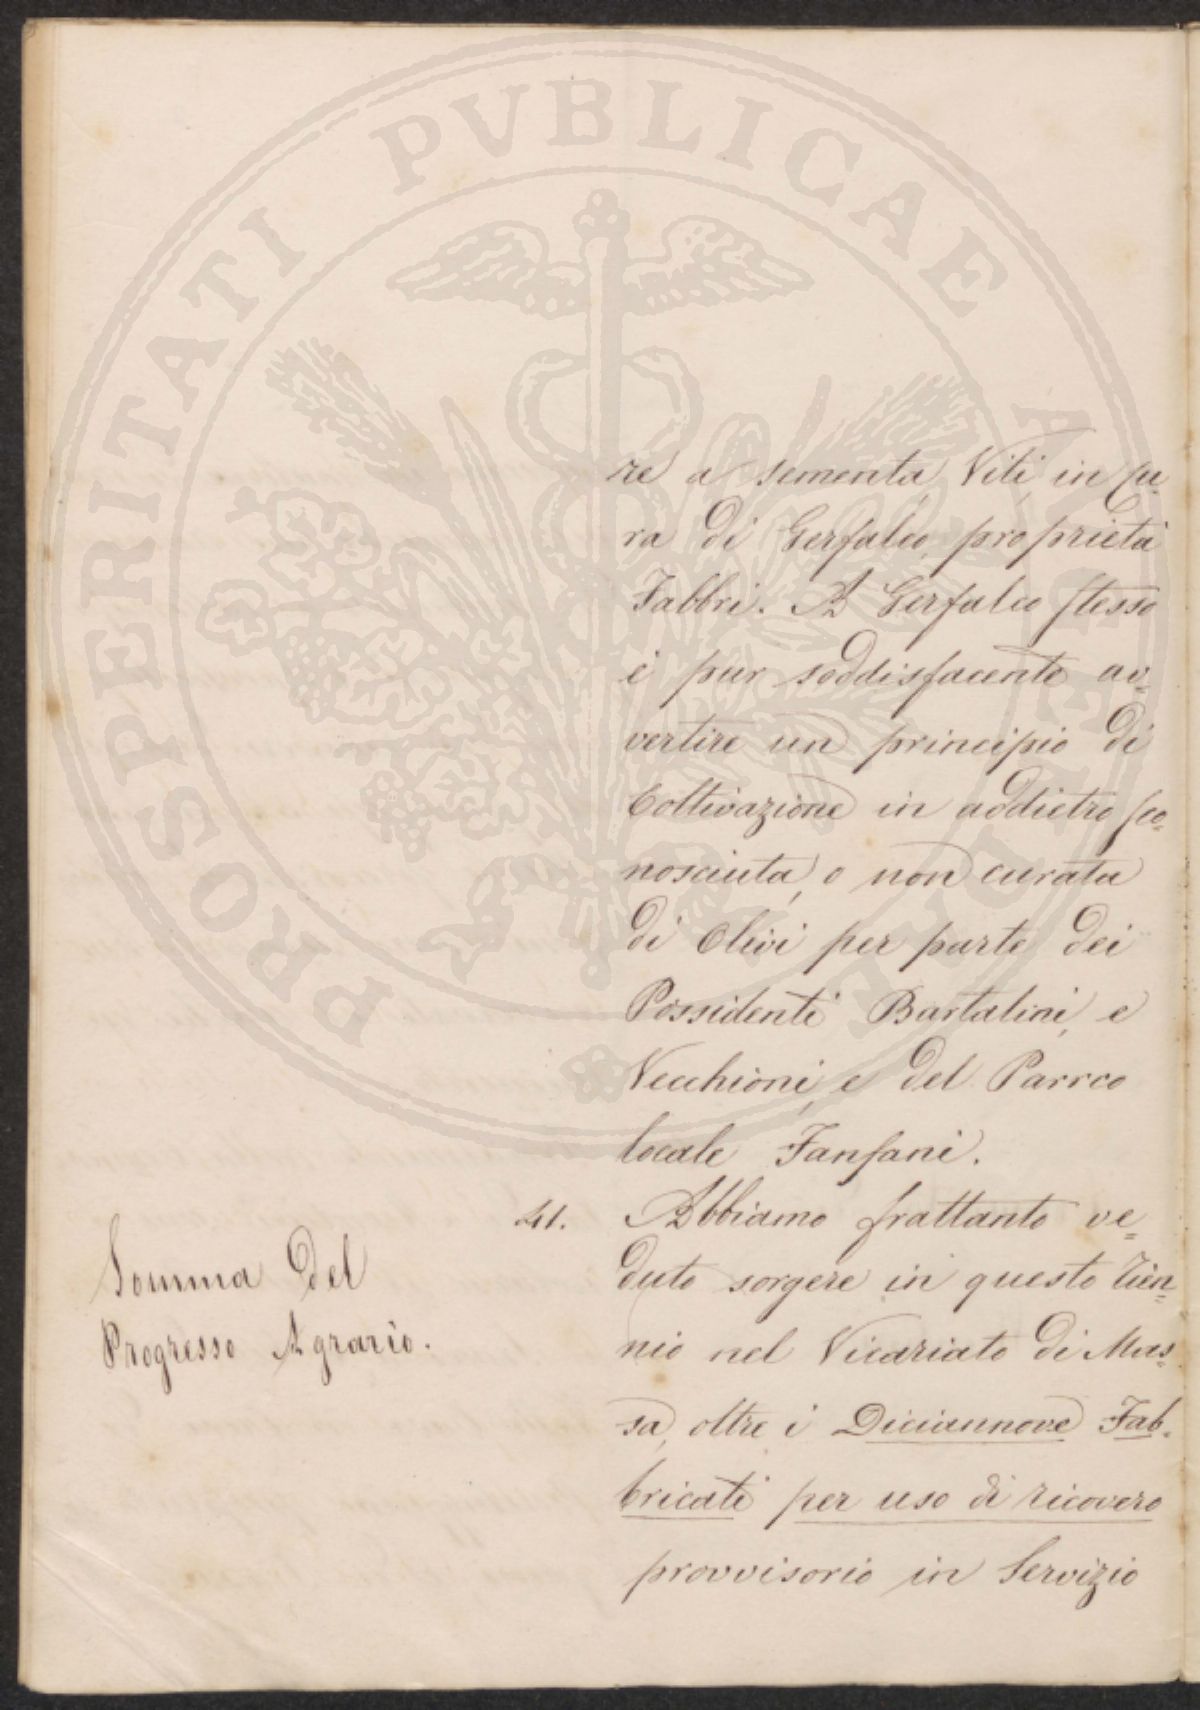 PROSPERITATI PVBLICAE AVGENDAE
re a sementa, Viti, in cu=
ra di Gerfalco, proprietà
Fabbri. A Gerfalco stesso
è pur soddisfacente av=
vertire un principio di
Coltivazione in addietro sco=
nosciuta, o non curata
di Olivi per parte dei
Possidenti Bartalini, e
Vecchioni, e del Parrco
locale Fanfani.
41. Abbiamo frattanto ve=
duto sorgere in questo Trien=
nio nel Vicariato di Mas=
sa, oltre i Diciannove Fab=
bricati per uso di ricovero
provvisorio in Servizio
Somma del
Progresso Agrario.